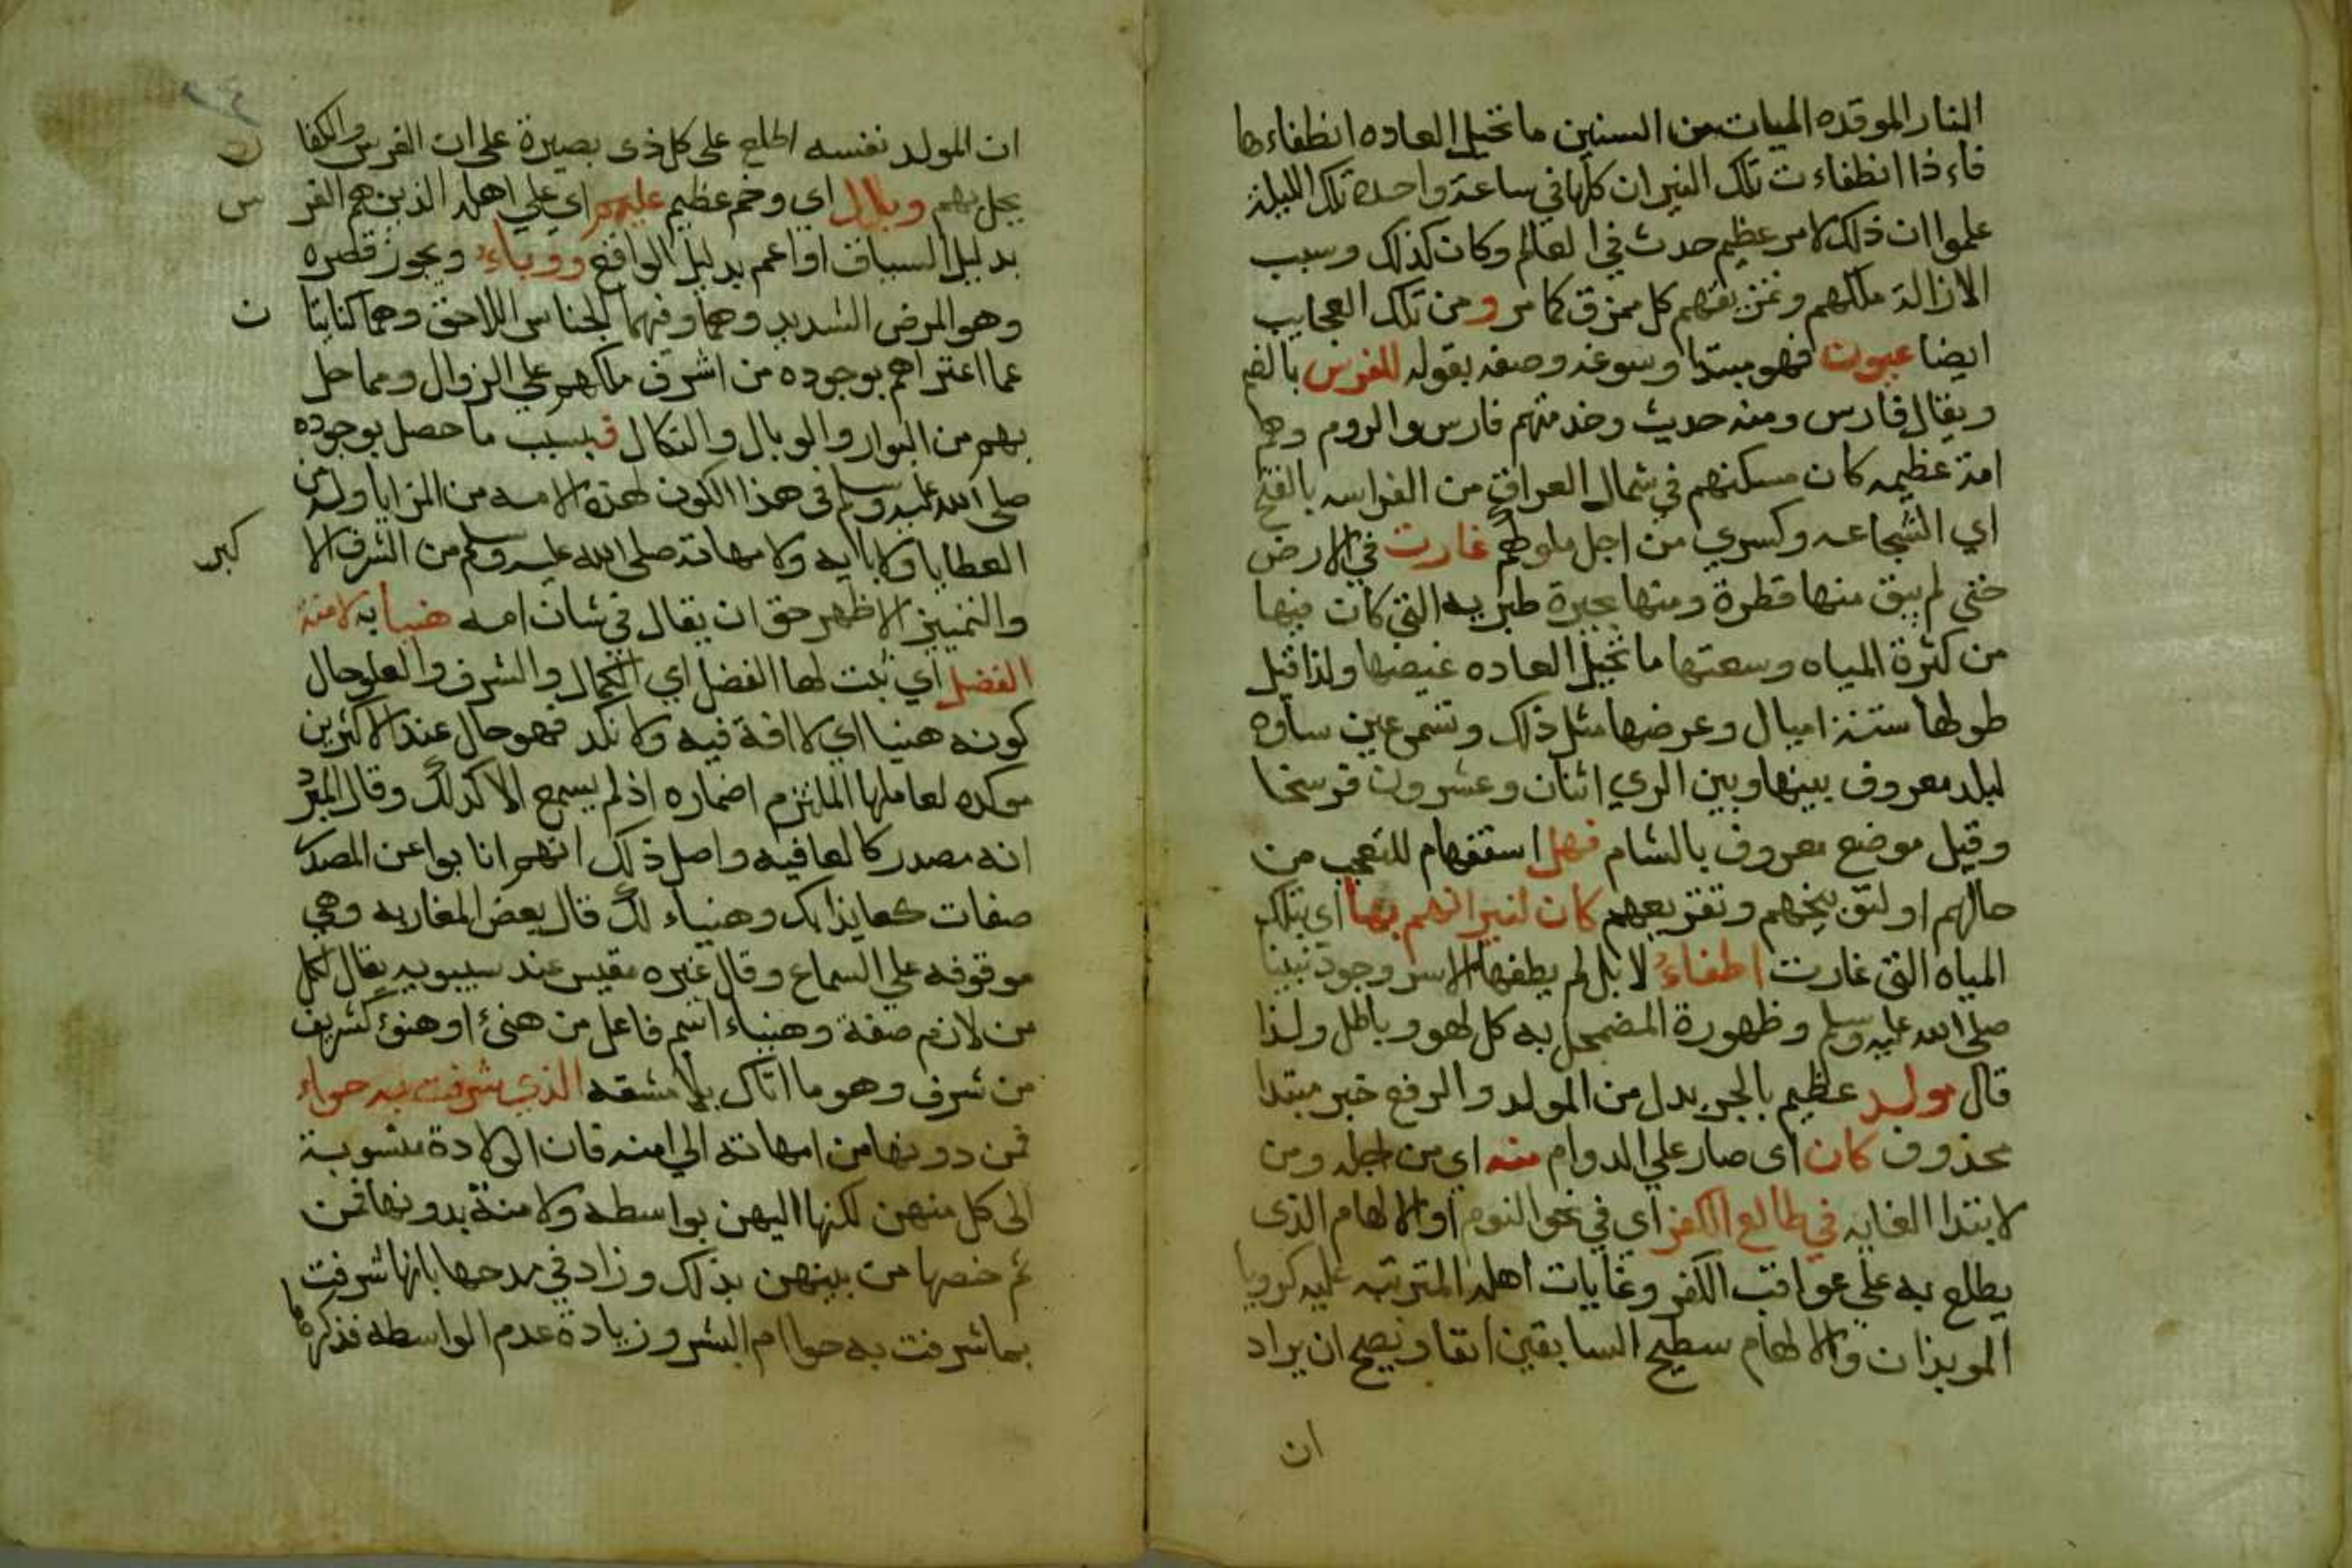 النار الموقده المئات من السنين ما تحيل العاده انطفاءها
فاءذا انطفاءت تلك النيران كلها في ساعة واحدة تلك الليلة
علموا ان ذلك لامر عظيم حدث في العالم وكان كذلك وسبب
الازالة ملكهم وتمزيقهم كل ممزق كما مر ومن تلك العجايب
ايضا عيون فهو مبتدا وسوغه وصفه بقوله للفرس بالضم
ويقال فارس ومنه حديث وخدمتهم فارس والروم وهم
امة عظيمه كان مسكنهم في شمال العراق من الفراسه بالفتح
اي الشجاعه وكسري من اجل ملوكهم غارت في الارض
حتى لم يبق منها قطرة ومنها بحيرة طبريه التي كان فيها
من كثرة المياه وسعتها ما تحيل العاده غيضها ولذا قيل
طولها ستة اميال وعرضها مثل ذلك وتسمى عين ساوه
لبلد معروف بينها وبين الري اثنان وعشرون فرسخا
وقيل موضع معروف بالشام فهل استفهام للتعجب من
حالهم او لتوبيخهم وتقريعهم كان لنيرانهم بها اي بتلك
المياه التي غارت اطفاء لا بل لم يطفها الا سر وجود نبينا
صلى الله عليه وسلم وظهورة المضمحل به كل لهو وباطل ولذا
قال مولد عظيم بالجر بدل من المولد والرفع خبر مبتدا
محذوف كان اى صار علي الدوام منه اي من اجله ومن
لابتدا الغايه في طالع الكفر اي في نحو النوم او الالهام الذى
يطلع به علي عواقب الكفر وغايات اهله المترتبه عليه كرويا
الموبذان والالهام سطيح السابقين انفا ويصح ان يراد
ان
ان المولد نفسه اطلع على كل ذى بصيرة على ان الفرس والكفا
ر
يحل بهم وبال اي وخم عظيم عليهم اي علي اهله الذين هم الفر
س
بدليل السياق او اعم بدليل الواقع ووباء ويجوز قصره
وهو المرض الشديد وهما وفيهما الجناس اللاحق وهما كنايتا
ن
عما اعتراهم بوجوده من اشرف ملكهم علي الزوال ومما حل
بهم من البوار والوبال والنكال فبسبب ما حصل بوجوده
صلى الله عليه وسلم في هذا الكون لهذه الامه من المزايا ولد من
العطايا ولابايه ولامهاته صلى الله عليه وسلم من الشرف الا
كبر
والتمييز الاظهر حق ان يقال في شان امه هنيا به لامنة
الفضل اي ثبت لها الفضل اي الكمال والشرف والعلو حال
كونه هنيا اي لا افة فيه ولا نكد فهو حال عند الاكثرين
موكده لعاملها الملتزم اضماره اذ لم يسمع الا كذلك وقال المبرد
انه مصدر كالعافيه واصل ذلك انهم انابوا عن المصدر
صفات كعايذابك وهنياء لك قال بعض المغاربه وهي
موقوفه علي السماع وقال غيره مقيس عند سيبويه يقال لكل
من لازم صفة وهنياء اسم فاعل من هنئ او هنؤ كشريف
من شرف وهو ما اتاك بلا مشقه الذي شرفت به حواء
فمن دونها من امهاته الي امنه فان الولادة منسوبة
الى كل منهن لكنها اليهن بواسطه ولامنة بدونها فمن
ثم خصها من بينهن بذلك وزاد في مدحها بانها شرفت
بما شرفت به حوا ام البشر وزيادة عدم الواسطه فذكرها